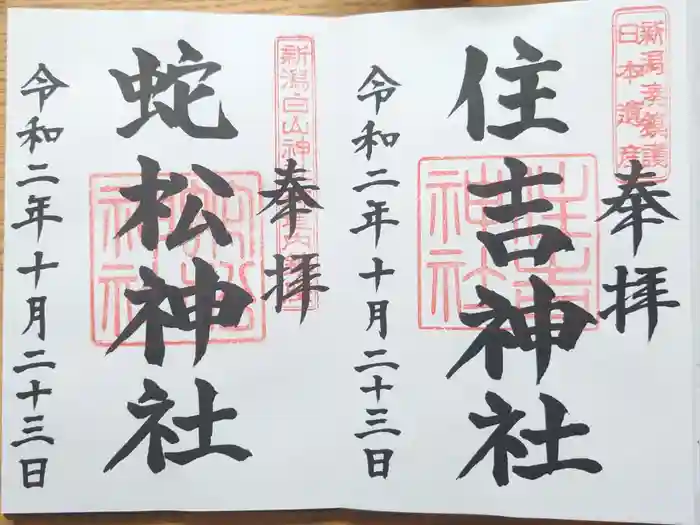 奉拝
住吉神社
令和二年十月二十三日
日本遺産
住吉神社
奉拝
蛇松神社
令和二年十月二十三日
新潟白山神
蛇松神社